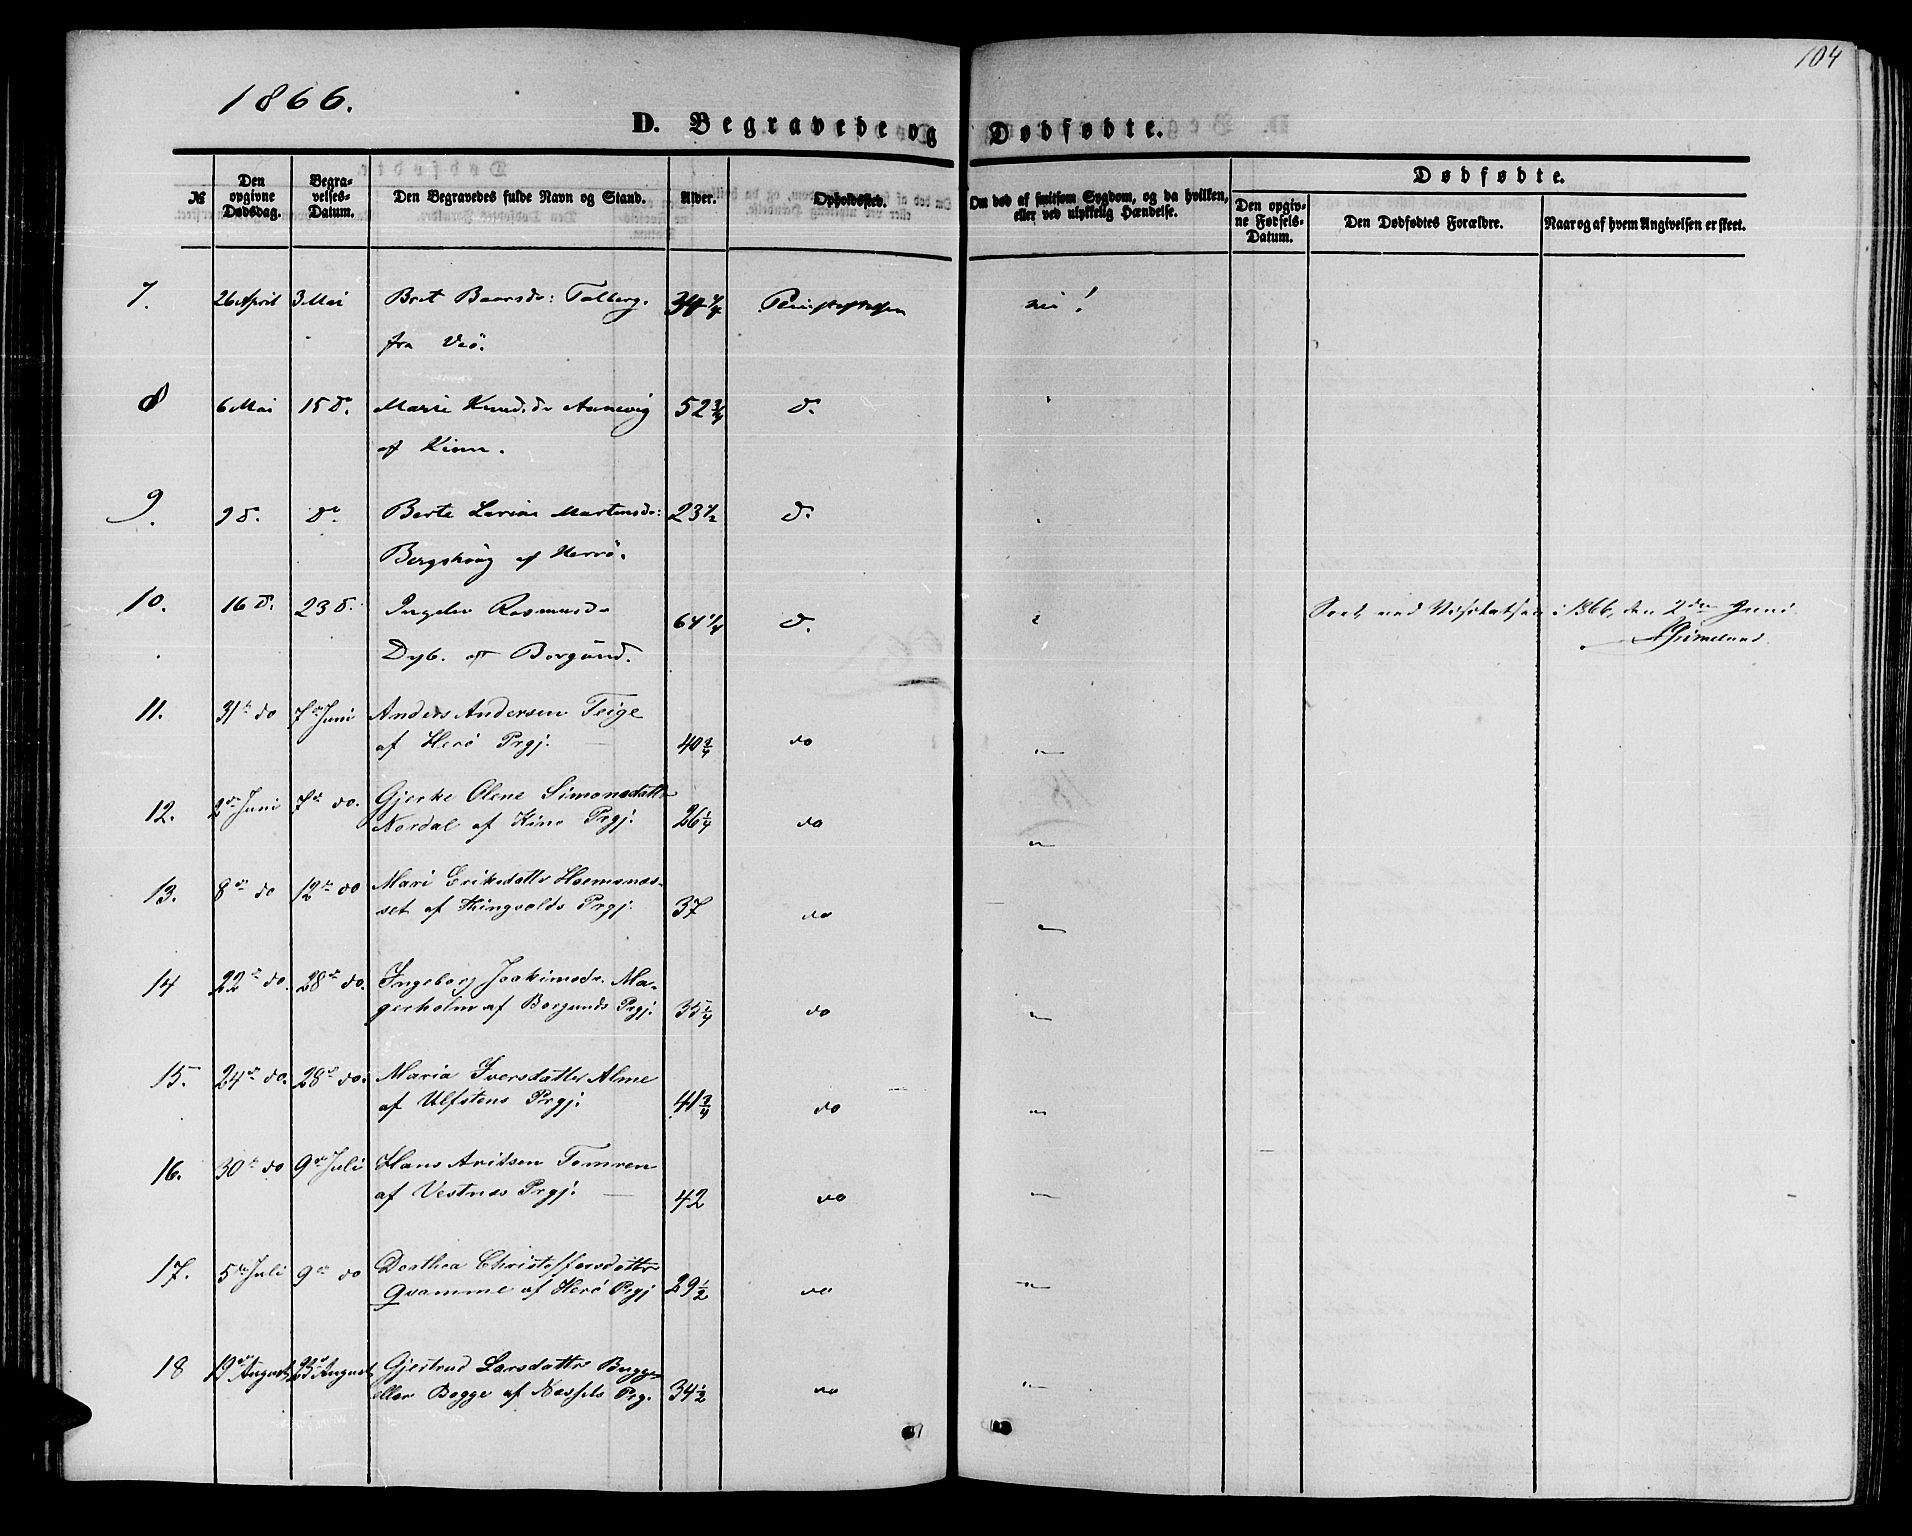 104
1866.
D. Begravede og Dødfødte.
№
Den opgivne Dødsdag.
Begravelses-Datum.
Den Begravedes fulde Navn og Stand.
Alder.
Opholdssted.
Om død af smitsom Sygdom, og da hvilken, eller ved ulykkelig Hændelse.
Dødfødte.
Den opgivne Førsels-Datum.
Den Dødfødtes Forældre.
Naar og af hvem Angivelsen er skeet.
7. 26 April 3. Mai Bret Baarsdr: Talberg. 34 nei!
fra Veø.
8 6 Mai 15 d. Marie Knudsdr Aanevig 52 3/4 d. "
af Kinn.
9. 9 d. do Berte Larine Martensdr: 23 1/2 d. "
Bergshoug af Herrö.
10. 16 d. 23 d. Rasmusdr 64 1/4 d. "
Dyb. af Borgund.
Seet ved Visitatsen i 1866, den 2den Juni
11. 31te do 7de Juni Anders Andersen Teige
af Herö Prgj. 40 3/4 do "
12. 2den Juni 7de do. Gjerke Olene Simonsdatter
Nordal af Kinn Prgj. 26 1/4 do "
13. 8de do 12te do Mari Eriksdattr Hoemsnæs-
set af Thingvolds Prgj. 37 do "
14 22de do. 28de do. Ingeborg Joakimsdr. Ma-
gerholm af Borgunds Prgj. 35 1/4 do "
15. 24de do. 28de do. Maria Iversdatter Alme
af Ulfstens Prgj. 41 3/4 do "
16. 30te do 9de Juli Hans Aritsen Tomren
af Vestnæs Prgj. 42 do "
17. 5te Juli 9de do Dorthea Christoffersdattr
Qvamme af Herö Prgj 29 1/2 do "
18 19de August 25de August Gjertrud Larsdattr Bugge
eller Bogge af Næssets Prg. 34 1/2 do "